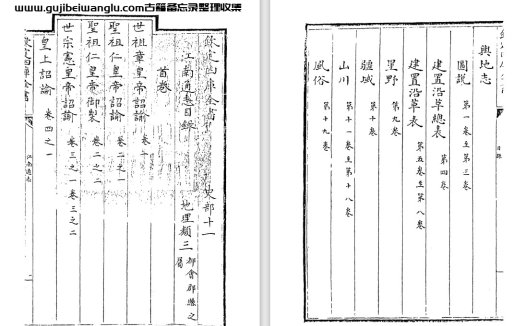 www.gujibeiwanglu.com古籍备忘录整理收集
欽定四庫全書 史部十一
江南通志目錄 地理類三 都會郡縣之屬
首卷
世祖章皇帝詔諭 卷一
聖祖仁皇帝詔諭 卷二之一
聖祖仁皇帝御製 卷二之二
世宗憲皇帝詔諭 卷三之一 卷三之二
皇上詔諭 卷四之一
江南通志
輿地志
圖說 第一卷至第三卷
建置沿革總表 第四卷
建置沿革表 第五卷至第八卷
星野 第九卷
疆域 第十卷
山川 第十一卷至第十八卷
風俗 第十九卷